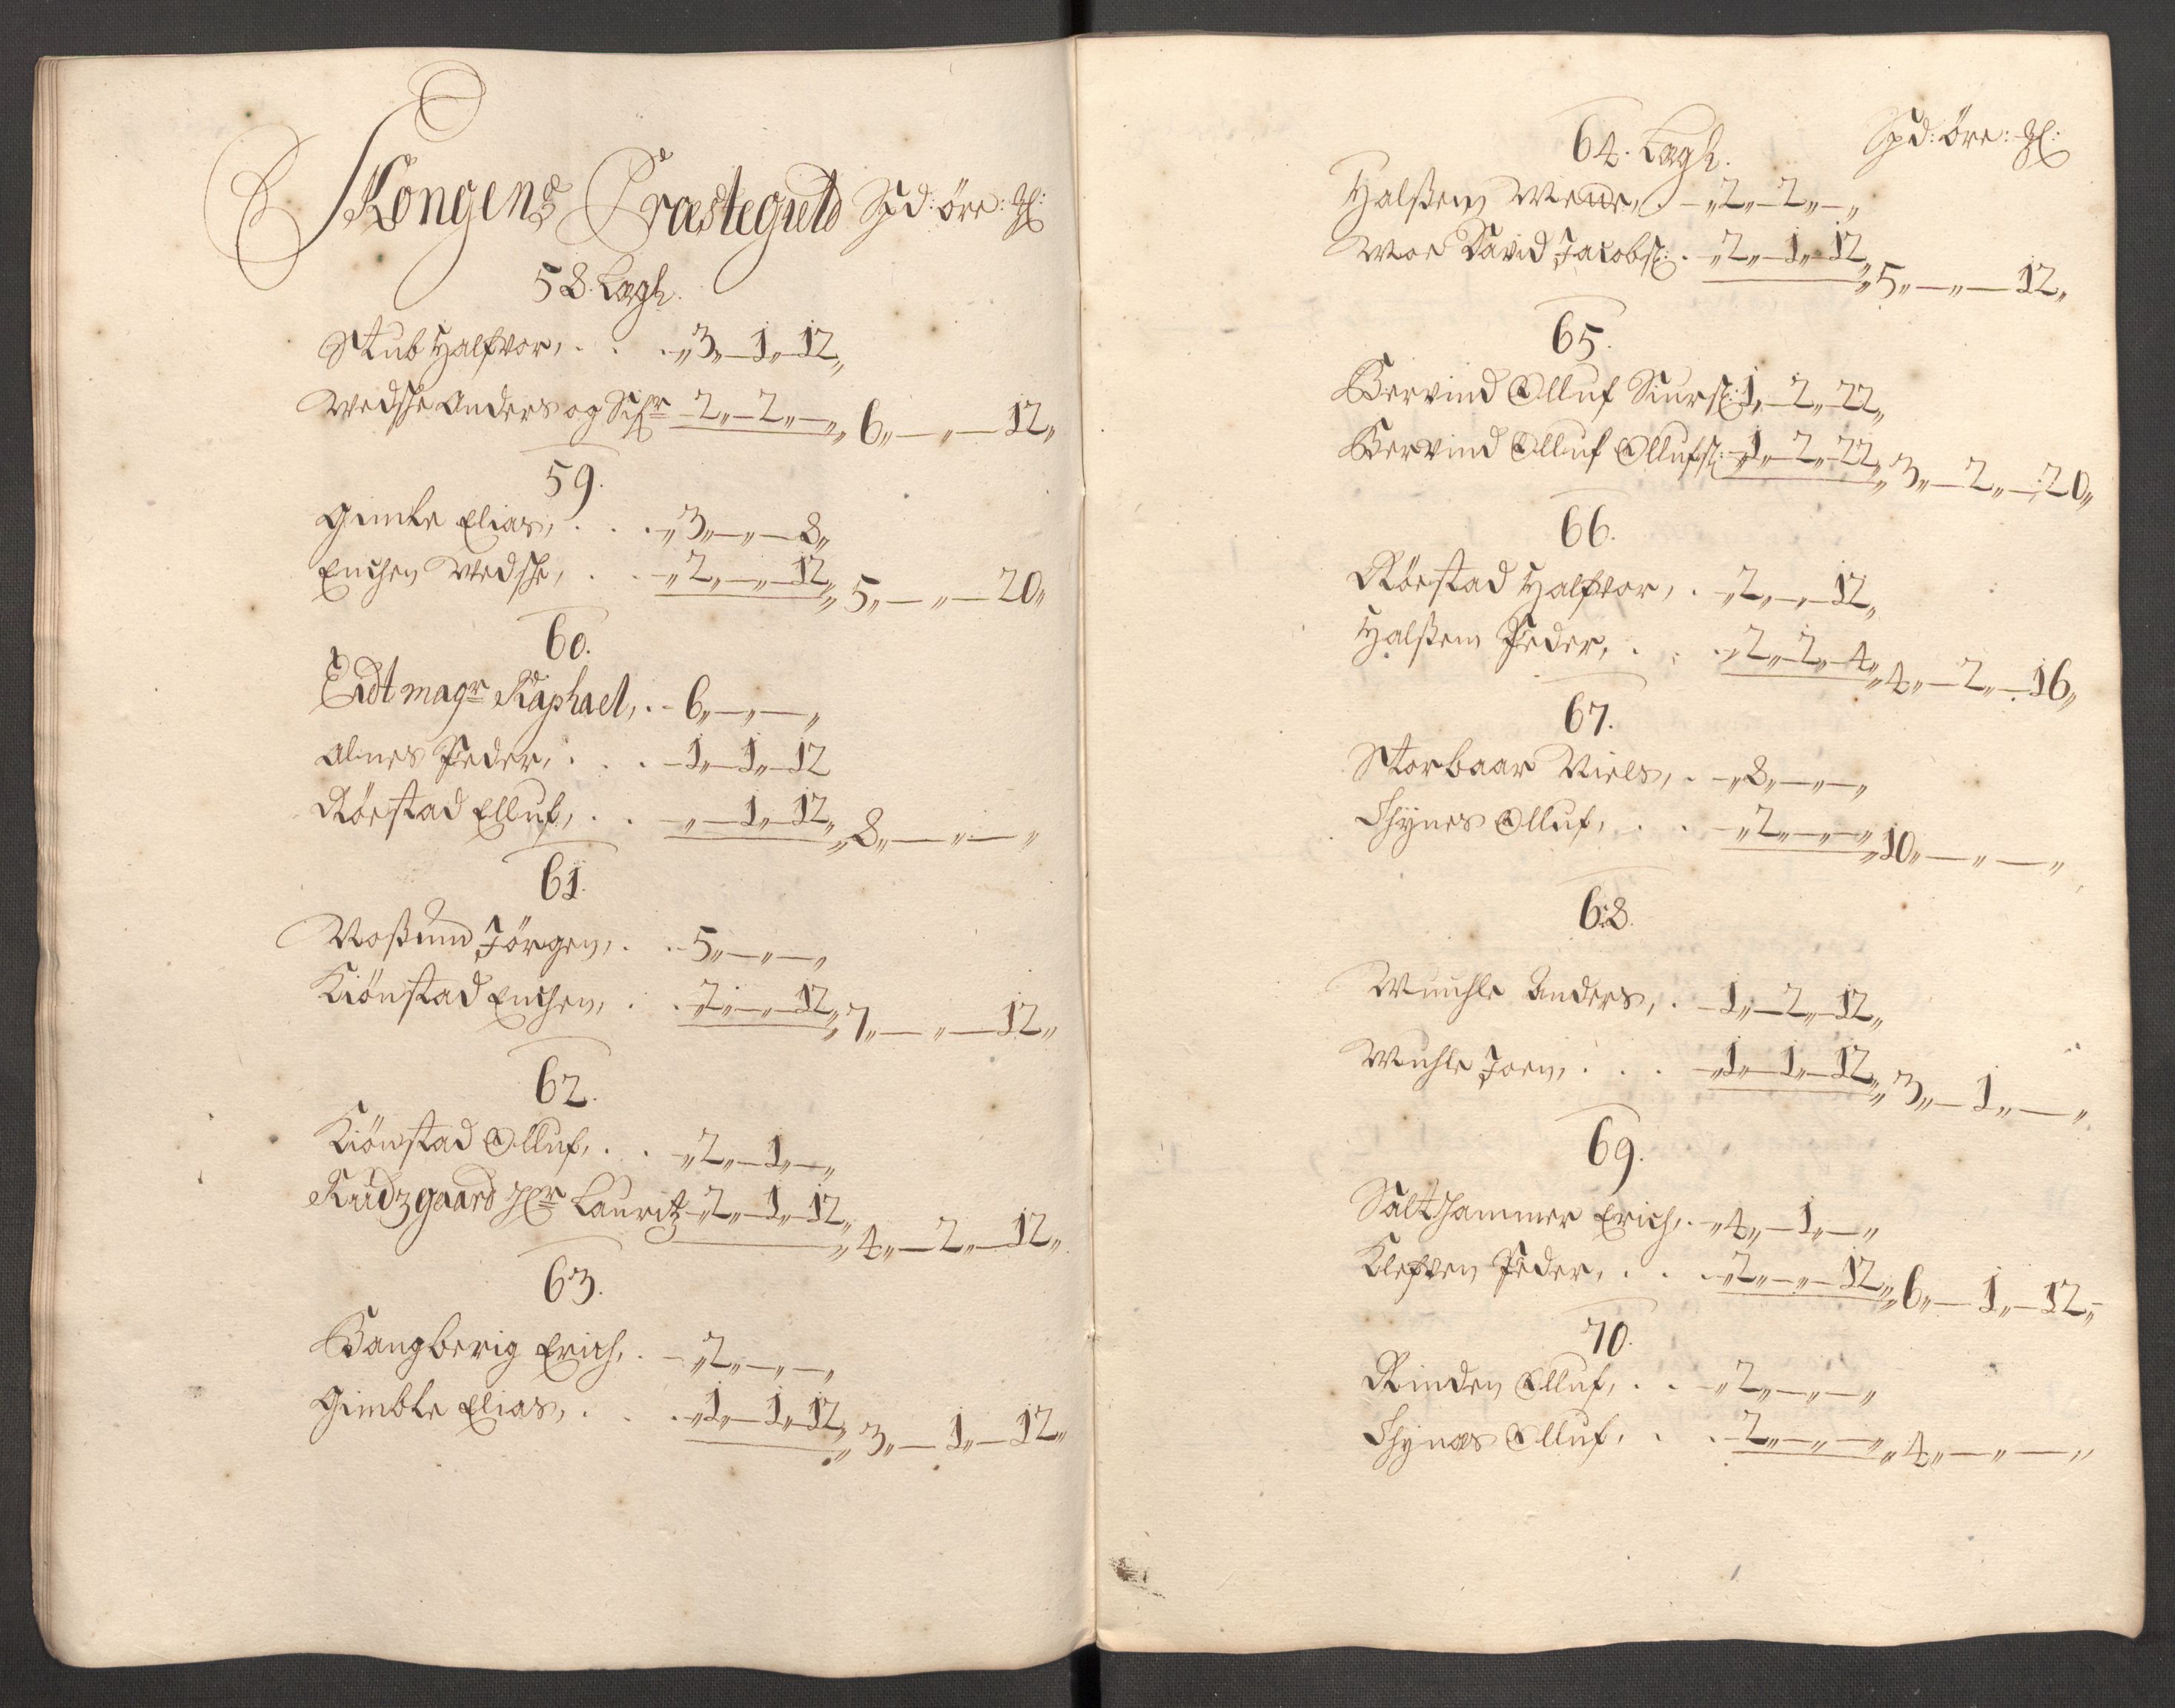 Skongens Præstegield Spd: öre: gl:
58. Legh.
Stub Halfvor, . . . „3„—1„—12„
Wedsle Anders og Sifr 2„—2„—„ „6„—„—12„
59.
Gimle Elias, . . . „3„—„—8„
Enchen Wedsle, . . „2„—„—12„ „5„—„—20„
60.
Eidt magr Raphael, . - 6„—„—„
Alnes Peder, . . . —1„—1„—12
Rörstad Elluf, . . „—1„—12„ „8„—„—„
61.
Moßum Jörgen, . . - 5„—„—„
Kiönstad Enchen, . . 2„—„—12„ „7„—„—12„
62.
Kiönstad Olluf, . . „2„—1„—„
Rudzgaard Hr Lauritz 2„—1„—12„ „4„—2„—12„
63.
Bangberig Erich, . „2„—„—„
Gimble Elias, . . . „1„—1„—12„ „3„—1„—12„
64. Legh. Spd: Öre: gl:
Halßem Mende, . „2„—2„—„
Moe David Jacobs: . „2„—1„—12„ „5„—„—12„
65.
Bervind Olluf Siurs: 1„—2„—22„
Bervind Olluf Ollufs: „1„—2„—22„ „3„—2„—20„
66.
Rörstad Halfvor, . „2„—„—12„
Halßem Peder, . . . „2„—2„—4„ „4„—2„—16„
67.
Storbaar Niels, . „8„—„—„
Thynes Olluf, . . „2„—„—„ „10„—„—„
68.
Muchle Anders, . —1„—2„—12„
Muchle Joen, . . . „1„—1„—12„ „3„—1„—„
69.
Salthammer Erich, . „4„—1„—„
Klefven Peder, . . „2„—„—12„ „6„—1„—12„
70.
Rinden Olluf, . . „2„—„—„
Thynæs Olluf, . . 2„—„—„ „4„—„—„